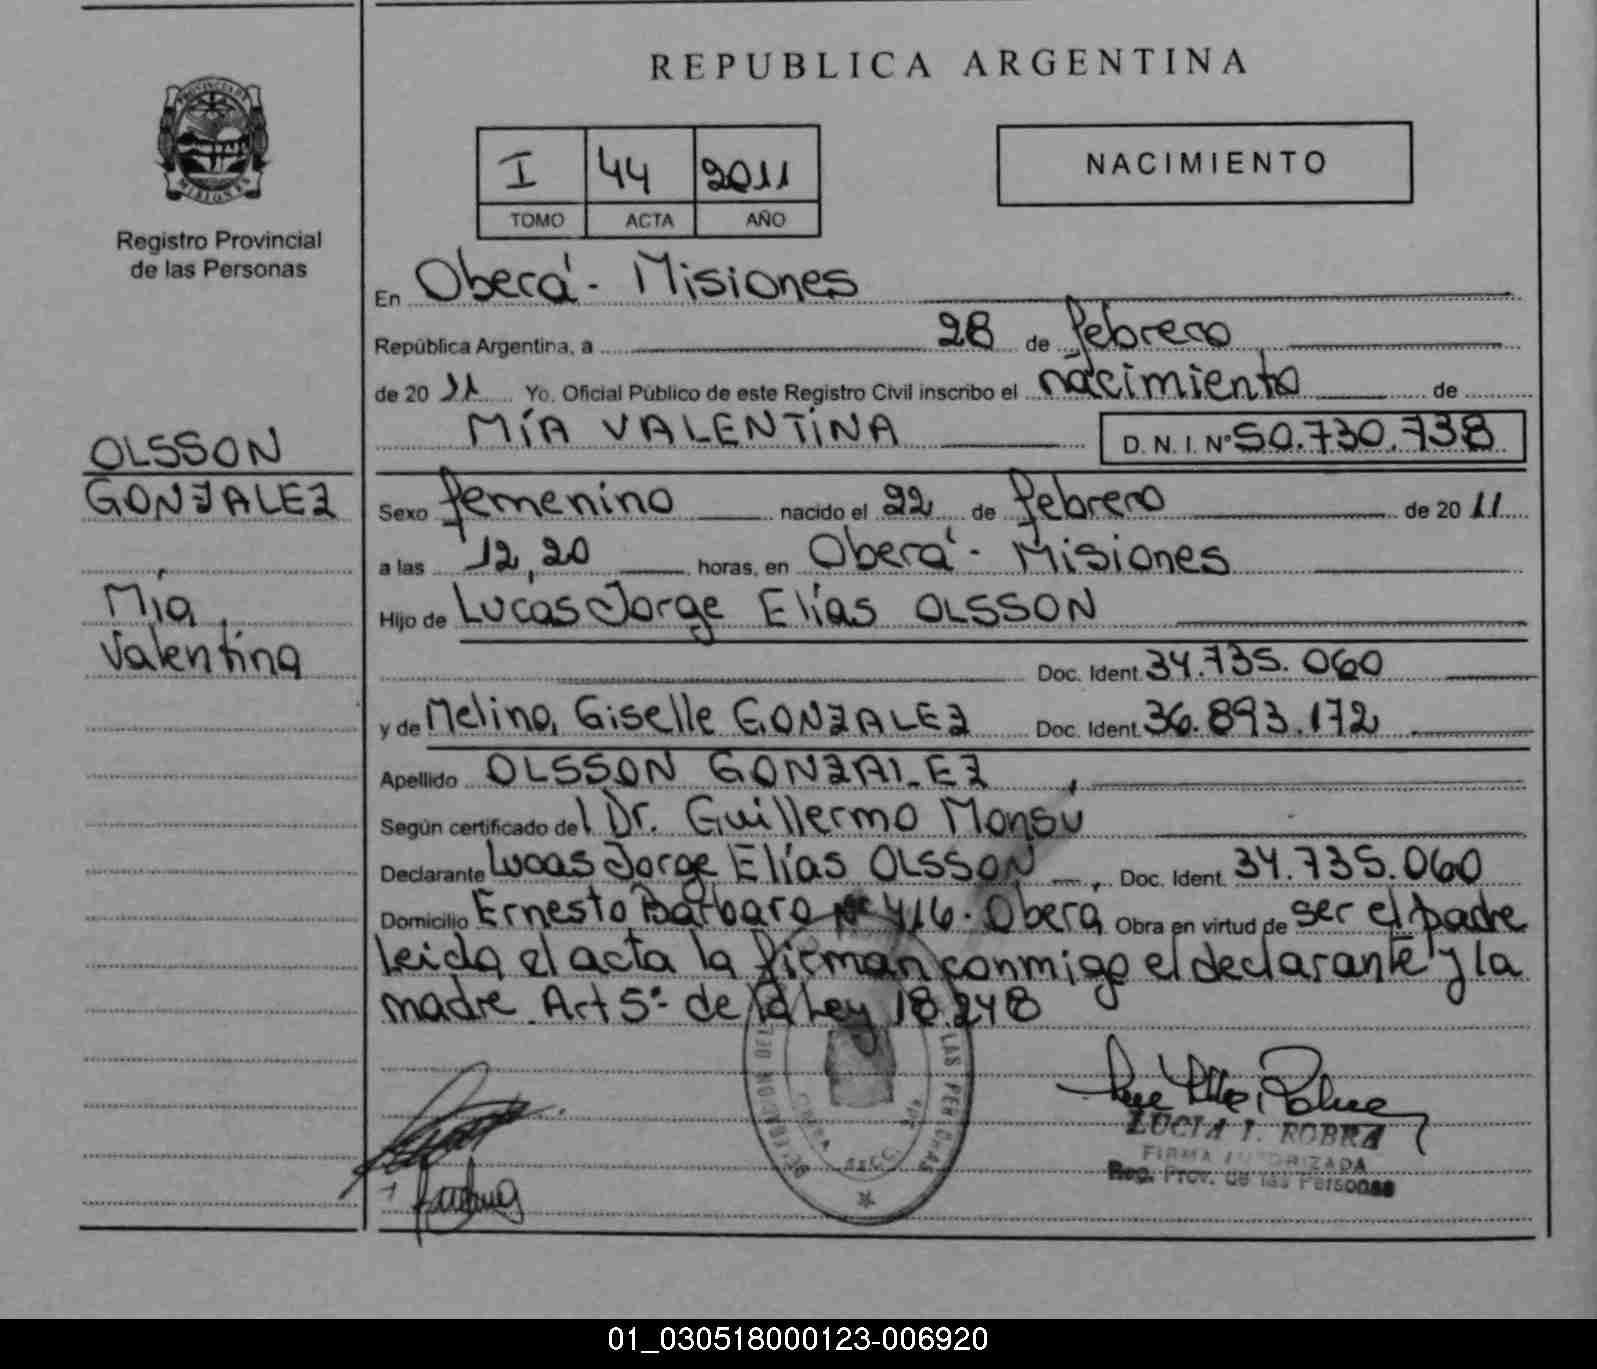 REPUBLICA ARGENTINA
PROVINCIA DE
MISIONES
Registro Provincial
de las Personas
I 44 2011
TOMO ACTA AÑO
NACIMIENTO
En Oberá - Misiones
República Argentina, a 28 de febrero
de 2011 Yo, Oficial Público de este Registro Civil inscribo el nacimiento de
MÍA VALENTINA D. N. I. Nº 50.730.738
OLSSON
GONZALEZ
Mía
Valentina
Sexo femenino nacido el 22 de febrero de 2011
a las 12,20 horas, en Oberá - Misiones
Hijo de Lucas Jorge Elías OLSSON
Doc. Ident. 34.735.060
y de Melina Giselle GONZALEZ Doc. Ident. 36.893.172
Apellido OLSSON GONZALEZ
Según certificado del Dr. Guillermo Monsú
Declarante Lucas Jorge Elías OLSSON, Doc. Ident. 34.735.060
Domicilio Ernesto Bárbaro Nº 416 - Oberá Obra en virtud de ser el padre
leida el acta la firman conmigo el declarante y la
madre. Art 5º de la Ley 18.248
LUCIA I. ROBRA
FIRMA AUTORIZADA
Reg. Prov. de las Personas
01_030518000123-006920